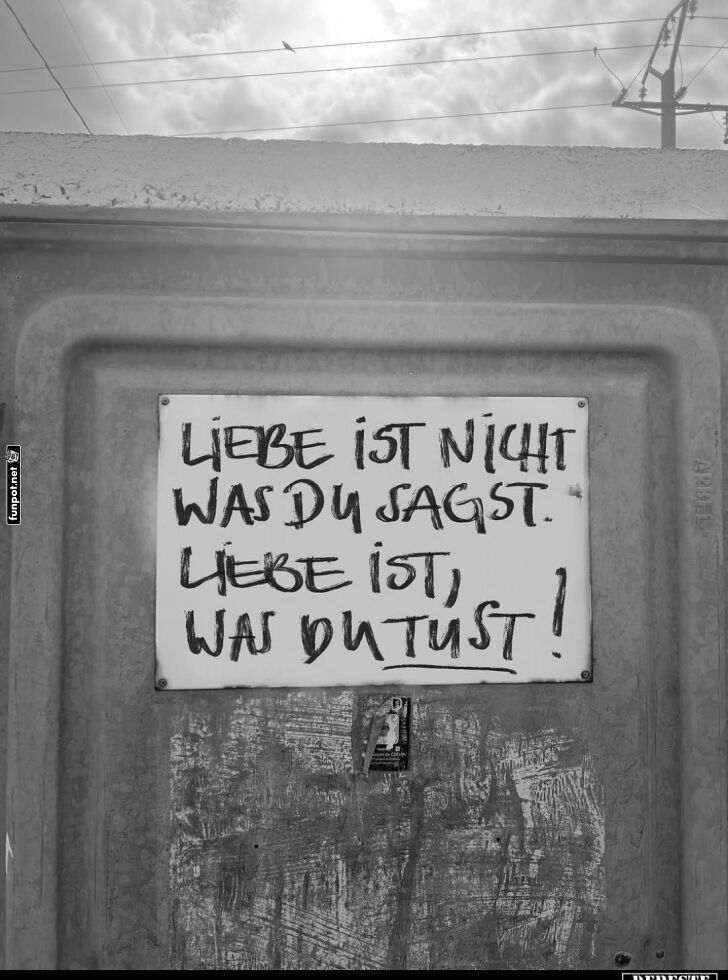 LIEBE IST NICHT
WAS DU SAGST.
LIEBE IST,
WAS DU TUST!
funpot.net